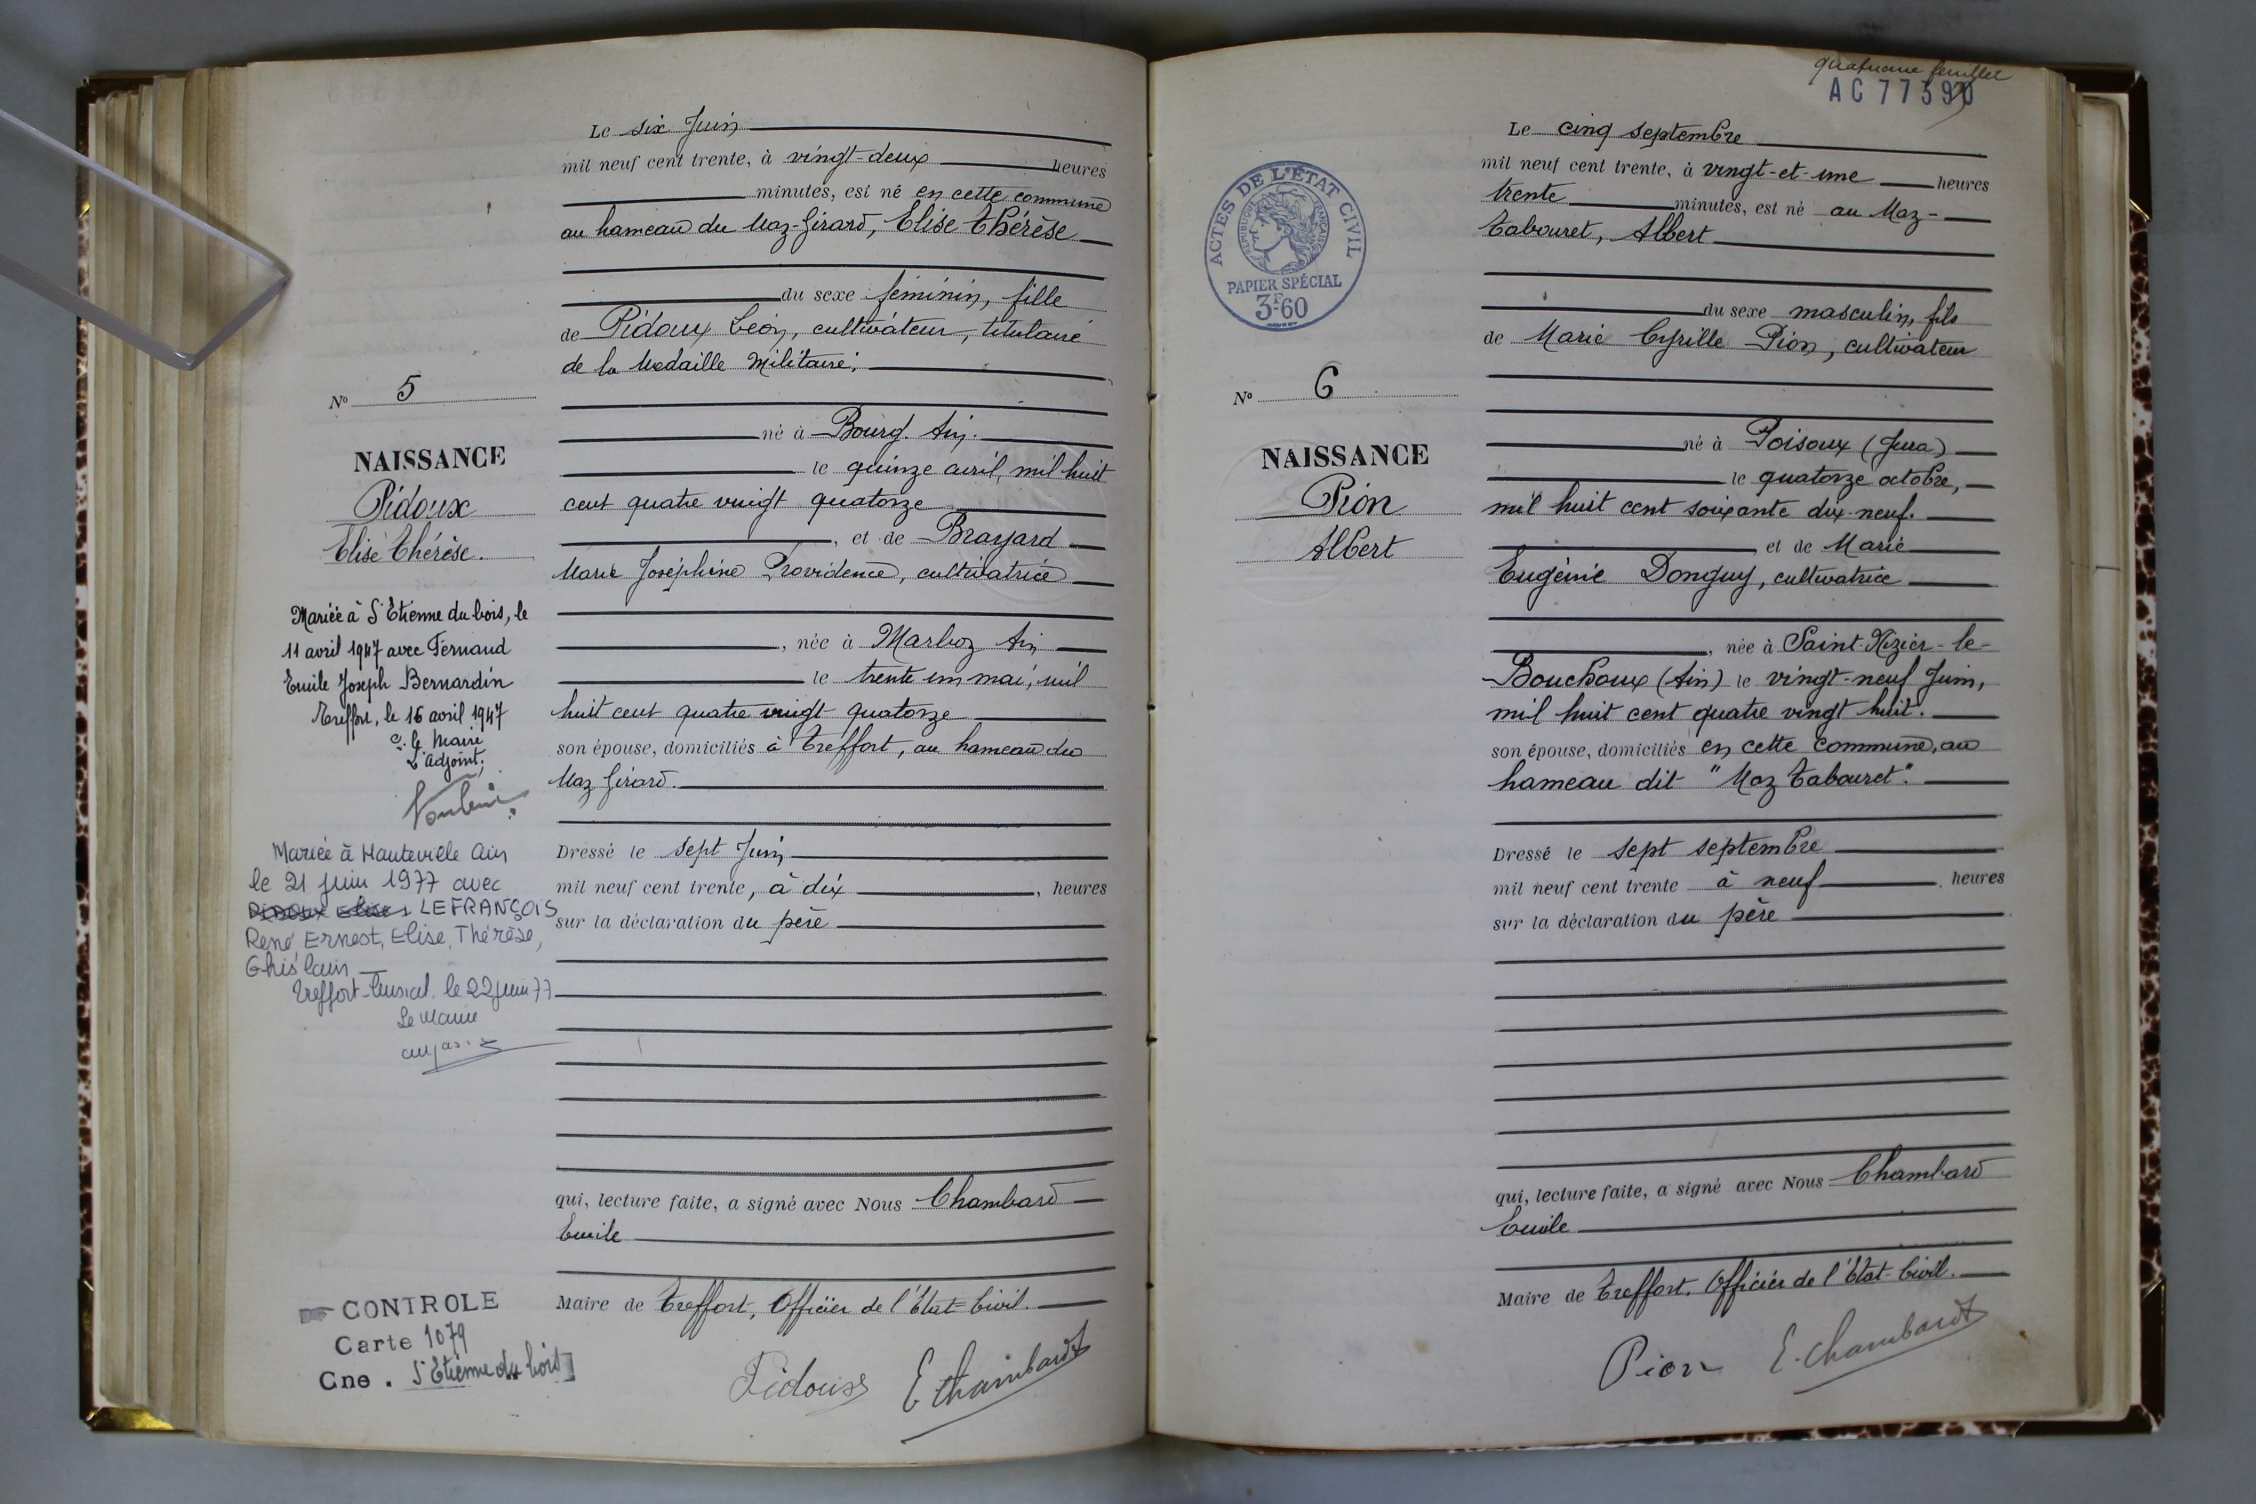 Le six Juin
mil neuf cent trente, à vingt-deux heures
minutes, est né en cette commune
au hameau du Maz-Girard, Elise Thérèse
du sexe féminin, fille
de Pidoux Léon, cultivateur, titulaire
de la Médaille Militaire;
né à Bourg. Ain.
le quinze avril, mil huit
cent quatre vingt quatorze
, et de Brayard
Marie Joséphine Providence, cultivatrice
, née à Marboz Ain
le trente un mai, mil
huit cent quatre vingt quatorze
son épouse, domiciliés à Treffort, au hameau du
Maz Girard.
Dressé le sept Juin
mil neuf cent trente, à dix , heures
sur la déclaration du père
qui, lecture faite, a signé avec Nous Chambard
Emile
Maire de Treffort, Officier de l'État-Civil.
Pidoux E Chambard
No 5
NAISSANCE
Pidoux
Elise Thérèse.
Mariée à St Etienne du bois, le
11 avril 1947 avec Fernand
Emile Joseph Bernardin
Treffort, le 16 avril 1947
P. le Maire
L'adjoint,
Mariée à Hauteville Ain
le 21 juin 1977 avec
PIDOUX Elise LEFRANÇOIS
René Ernest, Elise, Thérèse,
Ghislain
Treffort-Cuisiat le 22 juin 77
Le Maire
CONTROLE
Carte 1079
Cne . St Etienne du bois
quatrième feuillet
AC 77590
Le cinq septembre
mil neuf cent trente, à vingt-et-une heures
trente minutes, est né au Maz-
Tabouret, Albert
du sexe masculin, fils
de Marie Cyrille Pion, cultivateur
né à Poisoux (Jura)
le quatorze octobre,
mil huit cent soixante dix-neuf.
et de Marie
Eugénie Donguy, cultivatrice
, née à Saint-Nizier-le-
Bouchoux (Ain) le vingt-neuf Juin,
mil huit cent quatre vingt huit.
son épouse, domiciliés en cette commune, au
hameau dit "Maz Tabouret".
Dressé le sept septembre
mil neuf cent trente à neuf , heures
sur la déclaration du père
qui, lecture faite, a signé avec Nous Chambard
Emile
Maire de Treffort, Officier de l'État-Civil.
Pion E. Chambard
ACTES DE L'ÉTAT CIVIL
RÉPUBLIQUE FRANÇAISE
PAPIER SPÉCIAL
3F.60
No 6
NAISSANCE
Pion
Albert